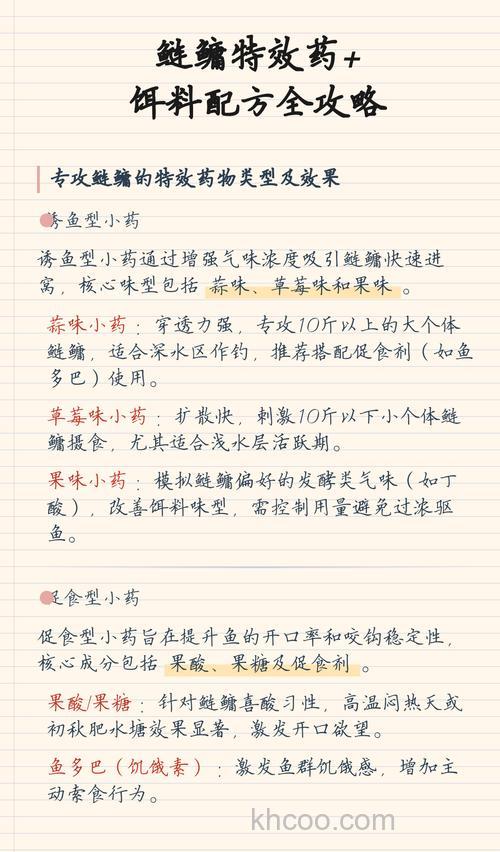 鲢鳙特效药+
饵料配方全攻略
专攻鲢鳙的特效药物类型及效果
诱鱼型小药
诱鱼型小药通过增强气味浓度吸引鲢鳙快速进
窝，核心味型包括 蒜味、草莓味和果味 。
蒜味小药 ：穿透力强，专攻10斤以上的大个体
鲢鳙，适合深水区作钓，推荐搭配促食剂（如鱼
多巴）使用。
草莓味小药 ：扩散快，刺激10斤以下小个体鲢
鳙摄食，尤其适合浅水层活跃期。
果味小药 ：模拟鲢鳙偏好的发酵类气味（如丁
酸），改善饵料味型，需控制用量避免过浓驱
鱼。
促食型小药
促食型小药旨在提升鱼的开口率和咬钩稳定性，
核心成分包括 果酸、果糖及促食剂 。
果酸/果糖 ：针对鲢鳙喜酸习性，高温闷热天或
初秋肥水塘效果显著，激发开口欲望。
鱼多巴（饥饿素） ：激发鱼群饥饿感，增加主
动索食行为。
khcoo.com